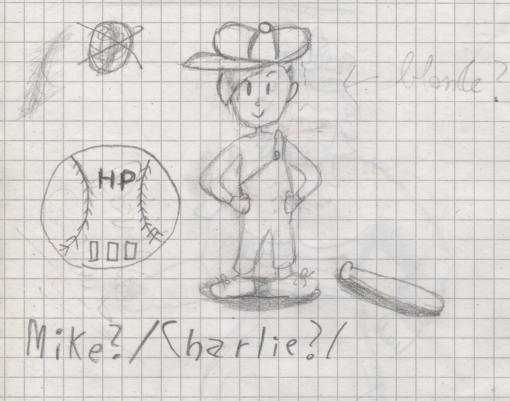 blonde?
HP
Mike?/Charlie?/